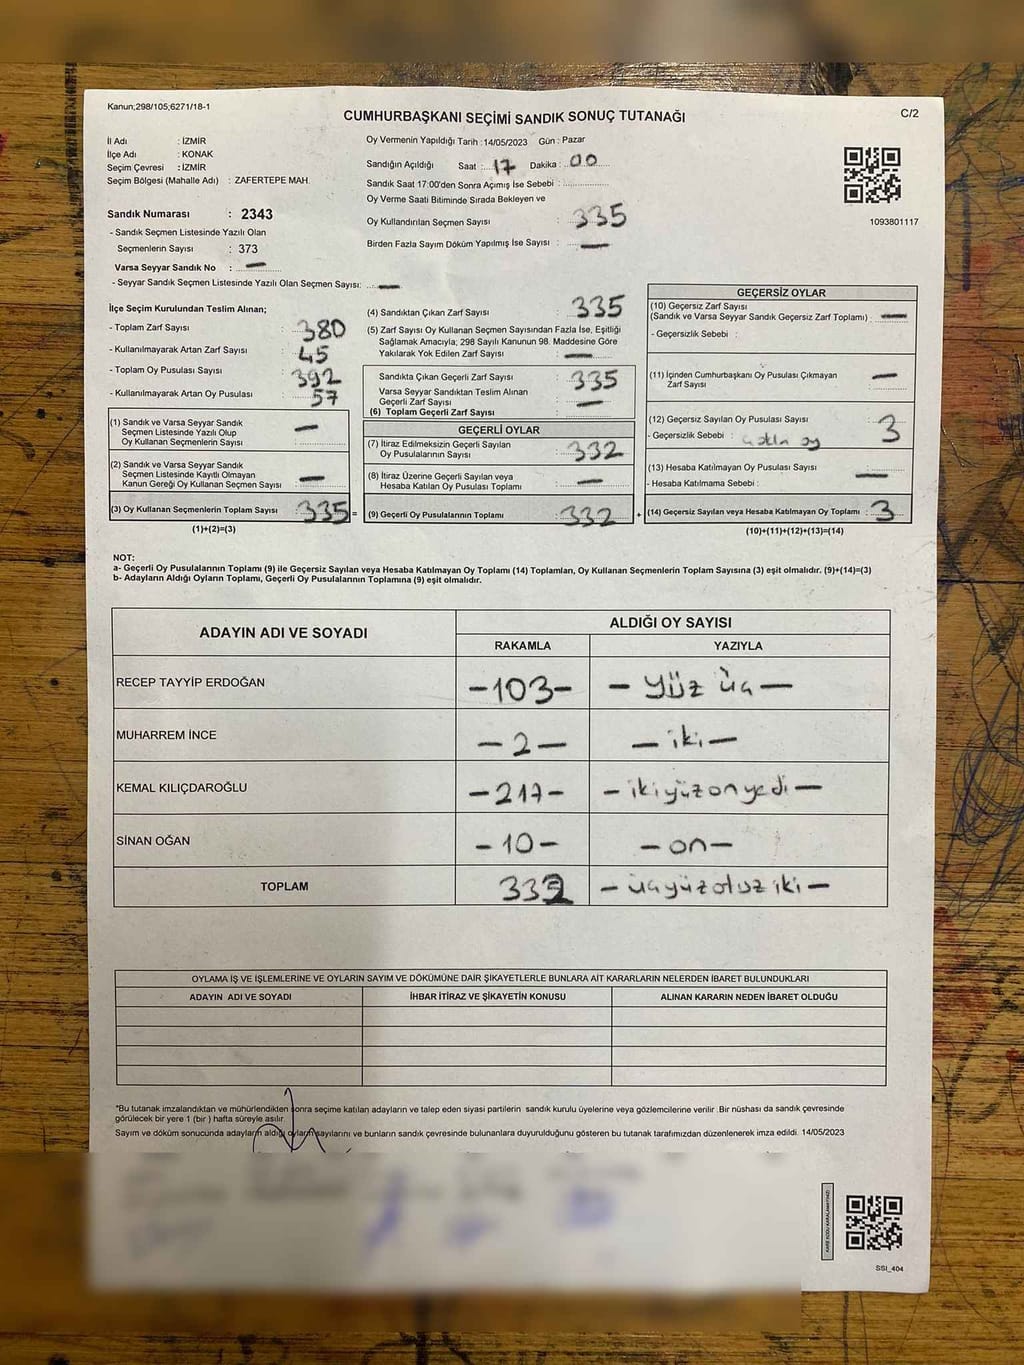 Kanun;298/105;6271/18-1
CUMHURBAŞKANI SEÇİMİ SANDIK SONUÇ TUTANAĞI
C/2
İl Adı : İZMİR
İlçe Adı : KONAK
Seçim Çevresi : İZMİR
Seçim Bölgesi (Mahalle Adı) : ZAFERTEPE MAH.
Oy Vermenin Yapıldığı Tarih :14/05/2023 Gün : Pazar
Sandığın Açıldığı Saat : 17 Dakika : 00
Sandık Saat 17:00'den Sonra Açımış İse Sebebi :
Oy Verme Saati Bitiminde Sırada Bekleyen ve
Oy Kullandırılan Seçmen Sayısı : 335
Birden Fazla Sayım Döküm Yapılmış İse Sayısı : —
1093801117
Sandık Numarası : 2343
- Sandık Seçmen Listesinde Yazılı Olan
Seçmenlerin Sayısı : 373
Varsa Seyyar Sandık No : —
- Seyyar Sandık Seçmen Listesinde Yazılı Olan Seçmen Sayısı: —
İlçe Seçim Kurulundan Teslim Alınan;
- Toplam Zarf Sayısı : 380
- Kullanılmayarak Artan Zarf Sayısı : 45
- Toplam Oy Pusulası Sayısı : 392
- Kullanılmayarak Artan Oy Pusulası : 57
(1) Sandık ve Varsa Seyyar Sandık
Seçmen Listesinde Yazılı Olup
Oy Kullanan Seçmenlerin Sayısı : —
(2) Sandık ve Varsa Seyyar Sandık
Seçmen Listesinde Kayıtlı Olmayan
Kanun Gereği Oy Kullanan Seçmen Sayısı : —
(3) Oy Kullanan Seçmenlerin Toplam Sayısı : 335 =
(1)+(2)=(3)
(4) Sandıktan Çıkan Zarf Sayısı : 335
(5) Zarf Sayısı Oy Kullanan Seçmen Sayısından Fazla İse, Eşitliği
Sağlamak Amacıyla; 298 Sayılı Kanunun 98. Maddesine Göre
Yakılarak Yok Edilen Zarf Sayısı : —
Sandıkta Çıkan Geçerli Zarf Sayısı : 335
Varsa Seyyar Sandıktan Teslim Alınan
Geçerli Zarf Sayısı : —
(6) Toplam Geçerli Zarf Sayısı
GEÇERLİ OYLAR
(7) İtiraz Edilmeksizin Geçerli Sayılan
Oy Pusulalarının Sayısı : 332
(8) İtiraz Üzerine Geçerli Sayılan veya
Hesaba Katılan Oy Pusulası Toplamı : —
(9) Geçerli Oy Pusulalarının Toplamı : 332 +
GEÇERSİZ OYLAR
(10) Geçersiz Zarf Sayısı
(Sandık ve Varsa Seyyar Sandık Geçersiz Zarf Toplamı) : —
- Geçersizlik Sebebi :
(11) İçinden Cumhurbaşkanı Oy Pusulası Çıkmayan
Zarf Sayısı : —
(12) Geçersiz Sayılan Oy Pusulası Sayısı : 3
- Geçersizlik Sebebi : oy
(13) Hesaba Katılmayan Oy Pusulası Sayısı : —
- Hesaba Katılmama Sebebi :
(14) Geçersiz Sayılan veya Hesaba Katılmayan Oy Toplamı : 3
(10)+(11)+(12)+(13)=(14)
NOT:
a- Geçerli Oy Pusulalarının Toplamı (9) ile Geçersiz Sayılan veya Hesaba Katılmayan Oy Toplamı (14) Toplamları, Oy Kullanan Seçmenlerin Toplam Sayısına (3) eşit olmalıdır. (9)+(14)=(3)
b- Adayların Aldığı Oyların Toplamı, Geçerli Oy Pusulalarının Toplamına (9) eşit olmalıdır.
ADAYIN ADI VE SOYADI
ALDIĞI OY SAYISI
RAKAMLA YAZIYLA
RECEP TAYYİP ERDOĞAN —103— — yüz üç —
MUHARREM İNCE — 2 — — iki —
KEMAL KILIÇDAROĞLU — 217 — — ikiyüzonyedi —
SİNAN OĞAN — 10 — — on —
TOPLAM 332 — üçyüzotuziki —
OYLAMA İŞ VE İŞLEMLERİNE VE OYLARIN SAYIM VE DÖKÜMÜNE DAİR ŞİKAYETLERLE BUNLARA AİT KARARLARIN NELERDEN İBARET BULUNDUKLARI
ADAYIN ADI VE SOYADI İHBAR İTİRAZ VE ŞİKAYETİN KONUSU ALINAN KARARIN NEDEN İBARET OLDUĞU
*Bu tutanak imzalandıktan ve mühürlendikten sonra seçime katılan adayların ve talep eden siyasi partilerin sandık kurulu üyelerine veya gözlemcilerine verilir .Bir nüshası da sandık çevresinde
görülecek bir yere 1 (bir ) hafta süreyle asılır.
Sayım ve döküm sonucunda adayların aldığı oyların sayılarını ve bunların sandık çevresinde bulunanlara duyurulduğunu gösteren bu tutanak tarafımızdan düzenlenerek imza edildi. 14/05/2023
SSI_404